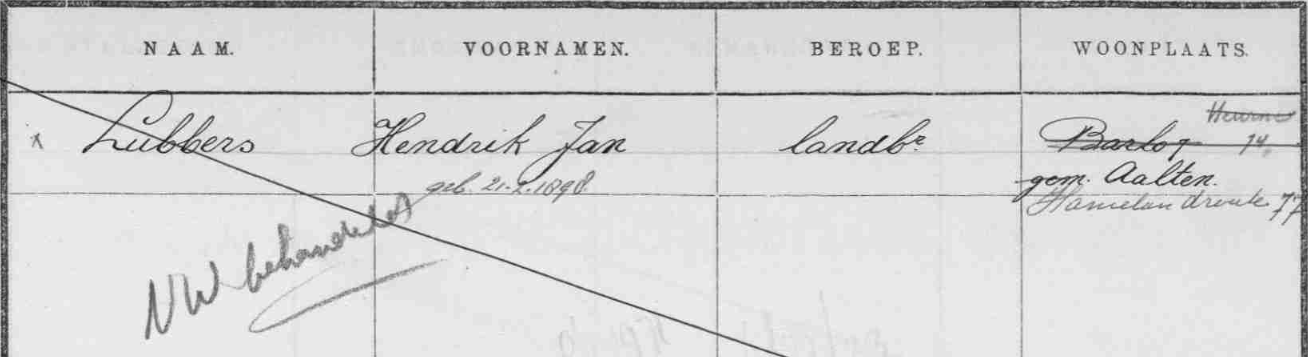 NAAM. VOORNAMEN. BEROEP. WOONPLAATS.
Heurne
x Lubbers Hendrik Jan landbr Barlo 14.
geb. 21.2.1898 gem. Aalten.
Hamelandroute 77
NW behandeld